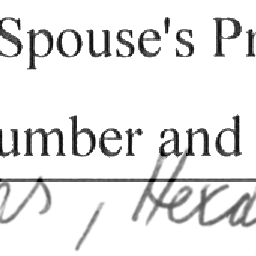 Spouse's Pr
umber and
as, Hexa